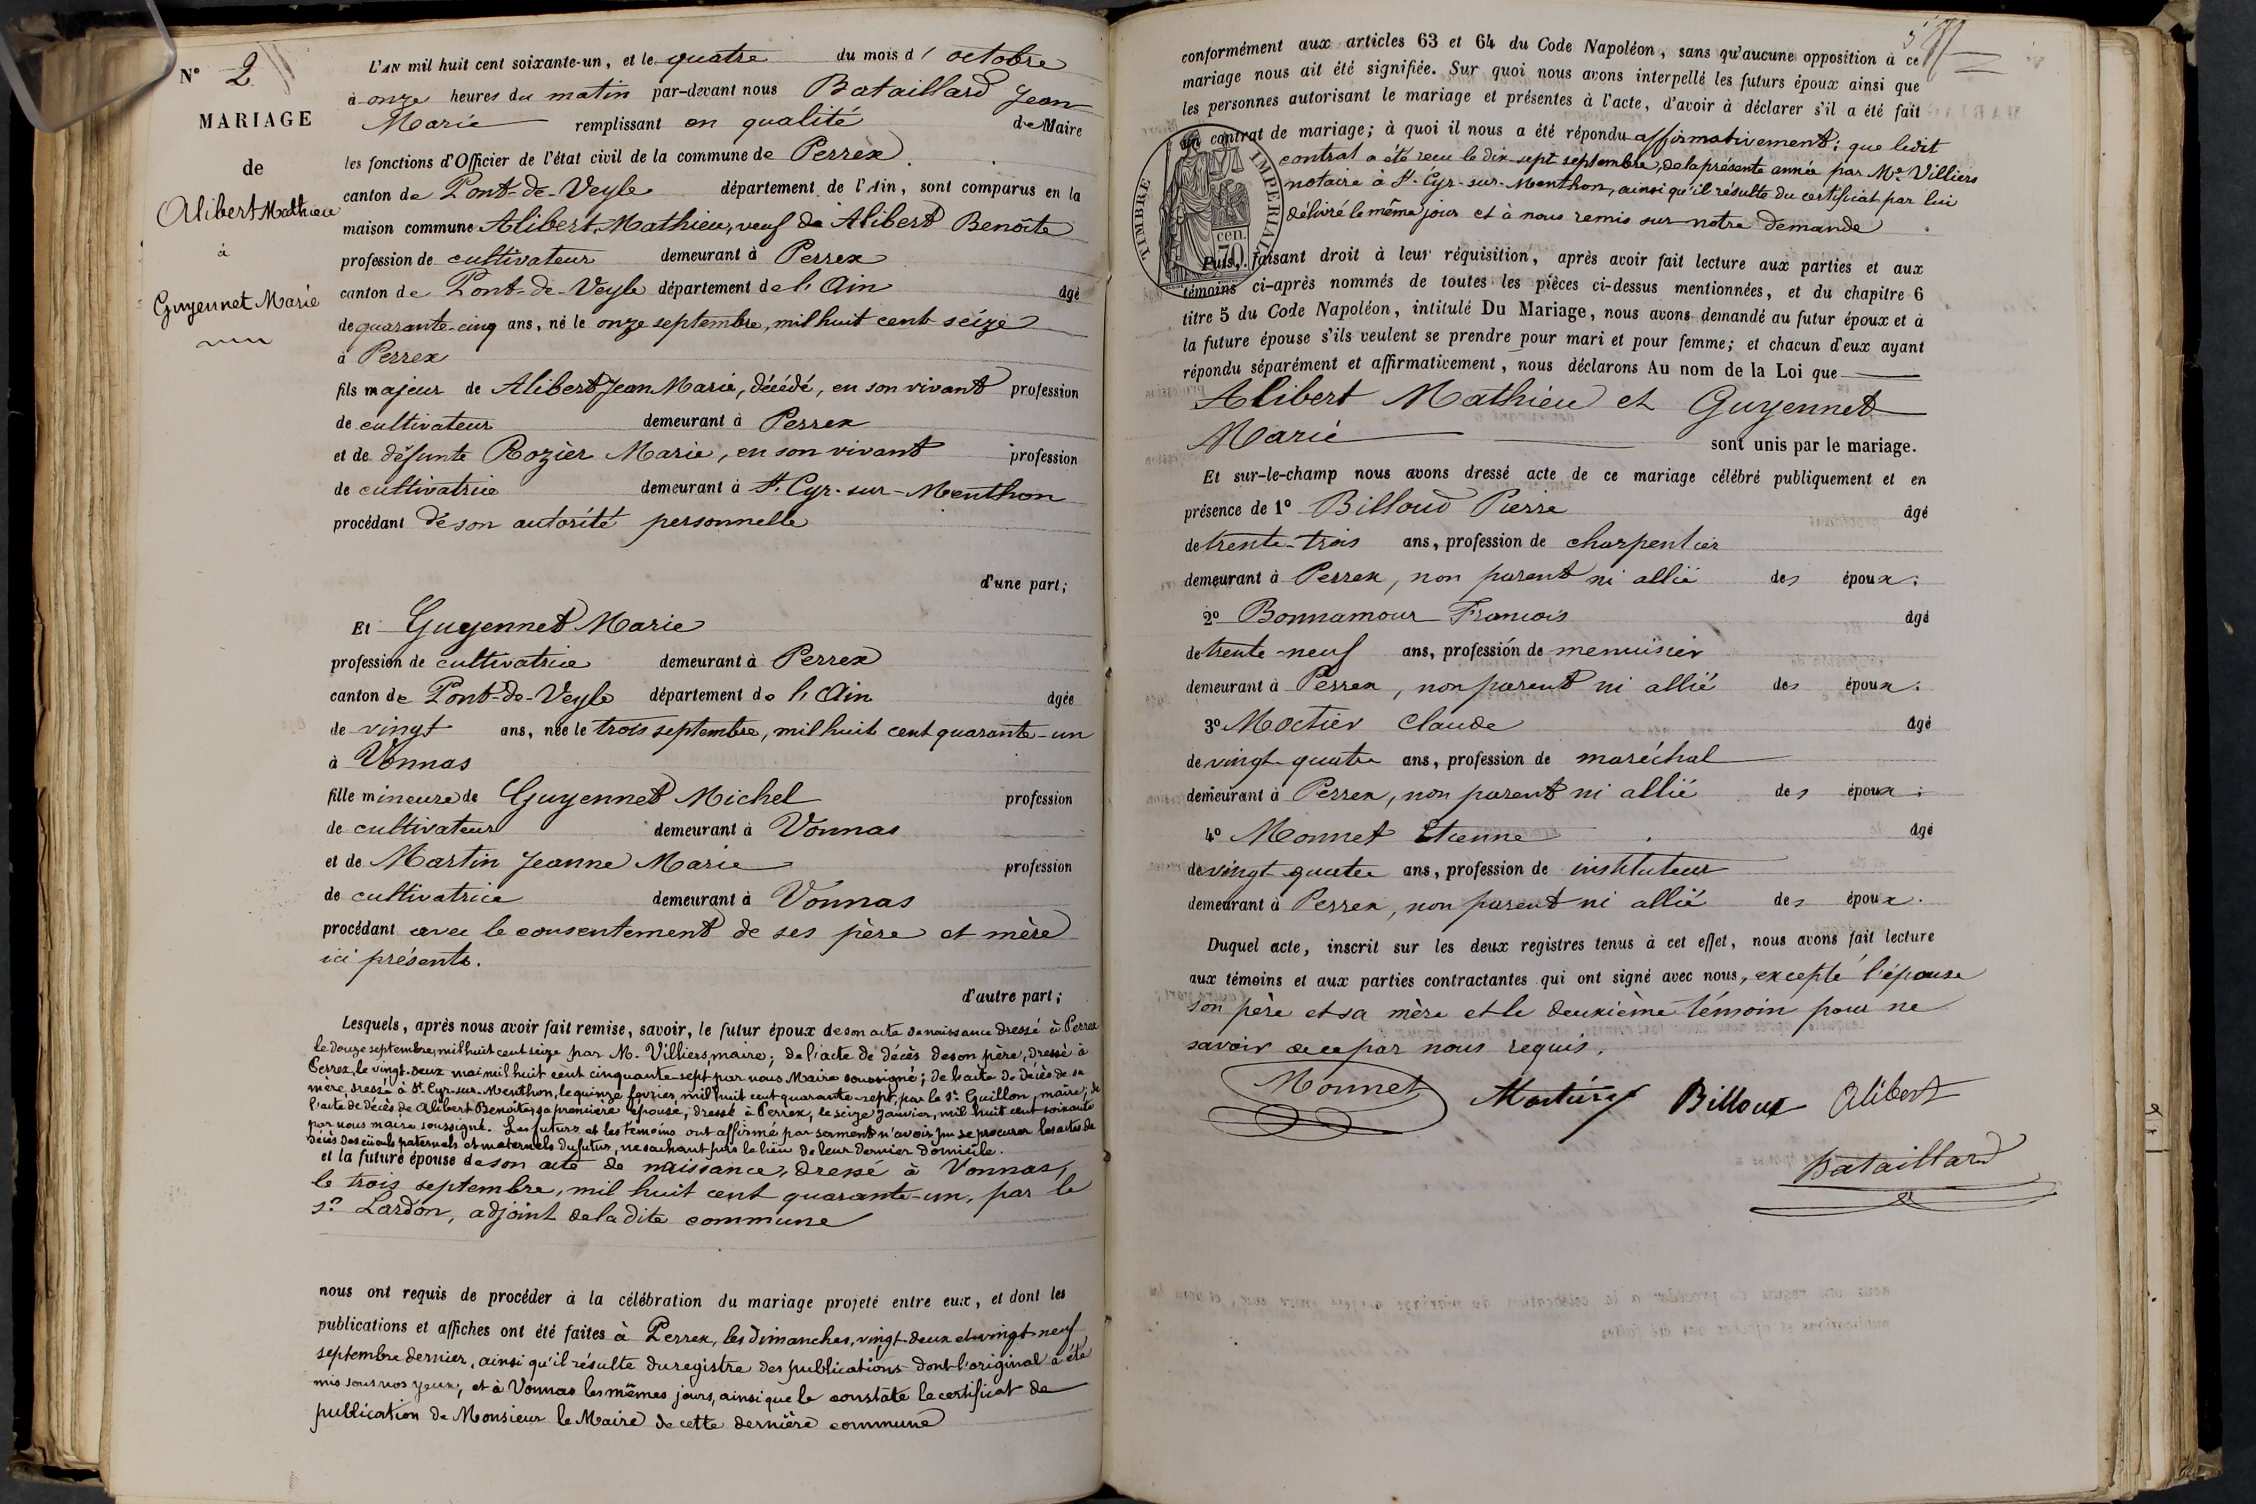 N° 2
MARIAGE
de
Alibert Mathieu
à
Guyennet Marie
L'AN mil huit cent soixante-un, et le quatre du mois d'octobre
à onze heures du matin par-devant nous Bataillard Jean
Marie remplissant en qualité de Maire
les fonctions d'Officier de l'état civil de la commune de Perrex
canton de Pont-de-Veyle département de l'Ain, sont comparus en la
maison commune Alibert, Mathieu, veuf de Alibert Benoîte
profession de cultivateur demeurant à Perrex
canton de Pont-de-Veyle département de l'Ain âgé
de quarante-cinq ans, né le onze septembre, mil huit cent seize
à Perrex
fils majeur de Alibert Jean Marie, décédé, en son vivant profession
de cultivateur demeurant à Perrex
et de défunte Rozier Marie, en son vivant profession
de cultivatrice demeurant à St. Cyr-sur-Menthon
procédant de son autorité personnelle
d'une part;
Et Guyennet Marie
profession de cultivatrice demeurant à Perrex
canton de Pont-de-Veyle département de l'Ain âgée
de vingt ans, née le trois septembre, mil huit cent quarante-un
à Vonnas
fille mineure de Guyennet Michel profession
de cultivateur demeurant à Vonnas
et de Martin Jeanne Marie profession
de cultivatrice demeurant à Vonnas
procédant avec le consentement de ses père et mère
ici présents.
d'autre part;
Lesquels, après nous avoir fait remise, savoir, le futur époux de son acte de naissance dressé à Perrex
le douze septembre, mil huit cent seize par M. Villiers maire; de l'acte de décès de son père, dressé à
Perrex, le vingt-deux mai mil huit cent cinquante-sept par nous Maire soussigné; de l'acte de décès de sa
mère, dressé à St. Cyr-sur-Menthon, le quinze février, mil huit cent quarante-sept, par le Sr. Guillon, maire; de
l'acte de décès de Alibert Benoîte, sa première épouse, dressé à Perrex, le seize janvier, mil huit cent soixante
par nous maire soussigné. Les futurs et les témoins ont affirmé par serment n'avoir pu se procurer les actes de
décès des aïeuls paternels et maternels du futur, ne sachant pas le lieu de leur dernier domicile.
et la future épouse de son acte de naissance, dressé à Vonnas,
le trois septembre, mil huit cent quarante-un, par le
Sr. Lardon, adjoint de la dite commune
nous ont requis de procéder à la célébration du mariage projeté entre eux, et dont les
publications et affiches ont été faites à Perrex, les dimanches, vingt-deux et vingt-neuf
septembre dernier, ainsi qu'il résulte du registre des publications dont l'original a été
mis sous nos yeux; et à Vonnas les mêmes jours, ainsi que le constate le certificat de
publication de Monsieur le Maire de cette dernière commune
conformément aux articles 63 et 64 du Code Napoléon, sans qu'aucune opposition à ce
mariage nous ait été signifiée. Sur quoi nous avons interpellé les futurs époux ainsi que
les personnes autorisant le mariage et présentes à l'acte, d'avoir à déclarer s'il a été fait
un contrat de mariage; à quoi il nous a été répondu affirmativement; que ledit
contrat a été reçu le dix-sept septembre, de la présente année par Me. Villiers
notaire à St. Cyr-sur-Menthon, ainsi qu'il résulte du certificat par lui
délivré le même jour et à nous remis sur notre demande
TIMBRE IMPERIAL
70 cen.
Puis, faisant droit à leur réquisition, après avoir fait lecture aux parties et aux
témoins ci-après nommés de toutes les pièces ci-dessus mentionnées, et du chapitre 6
titre 5 du Code Napoléon, intitulé Du Mariage, nous avons demandé au futur époux et à
la future épouse s'ils veulent se prendre pour mari et pour femme; et chacun d'eux ayant
répondu séparément et affirmativement, nous déclarons Au nom de la Loi que
Alibert Mathieu et Guyennet
Marie sont unis par le mariage.
Et sur-le-champ nous avons dressé acte de ce mariage célébré publiquement et en
présence de 1° Billoud Pierre âgé
de trente-trois ans, profession de charpentier
demeurant à Perrex, non parent ni allié des époux;
2° Bonnamour François âgé
de trente-neuf ans, profession de menuisier
demeurant à Perrex, non parent ni allié des époux;
3° Moctier Claude âgé
de vingt-quatre ans, profession de maréchal
demeurant à Perrex, non parent ni allié des époux;
4° Monnet Etienne âgé
de vingt-quatre ans, profession de instituteur
demeurant à Perrex, non parent ni allié des époux.
Duquel acte, inscrit sur les deux registres tenus à cet effet, nous avons fait lecture
aux témoins et aux parties contractantes qui ont signé avec nous, excepté l'épouse
son père et sa mère et le deuxième témoin pour ne
savoir de ce par nous requis.
Monnet Billoux Alibert
Bataillard